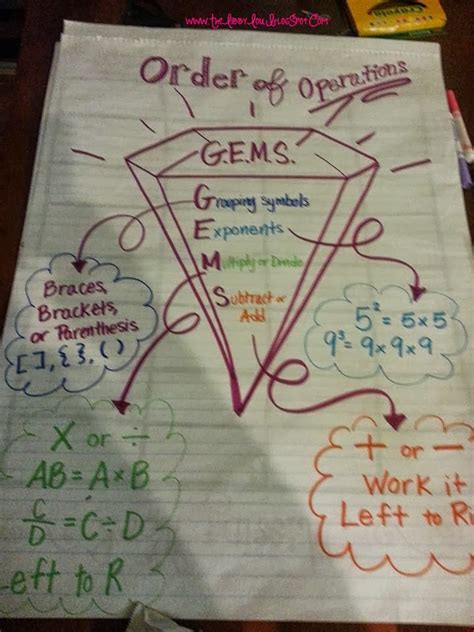 www.theLeeryLou.blogspot.com
Order of Operations
G.E.M.S.
Grouping Symbols
Exponents
Multiply or Divide
Subtract or
Add
Braces,
Brackets,
or Parenthesis
[ ], { }, ( )
5² = 5 x 5
9³ = 9 x 9 x 9
X or ÷
AB = A x B
C/D = C ÷ D
Left to R
+ or -
Work it
Left to Ri